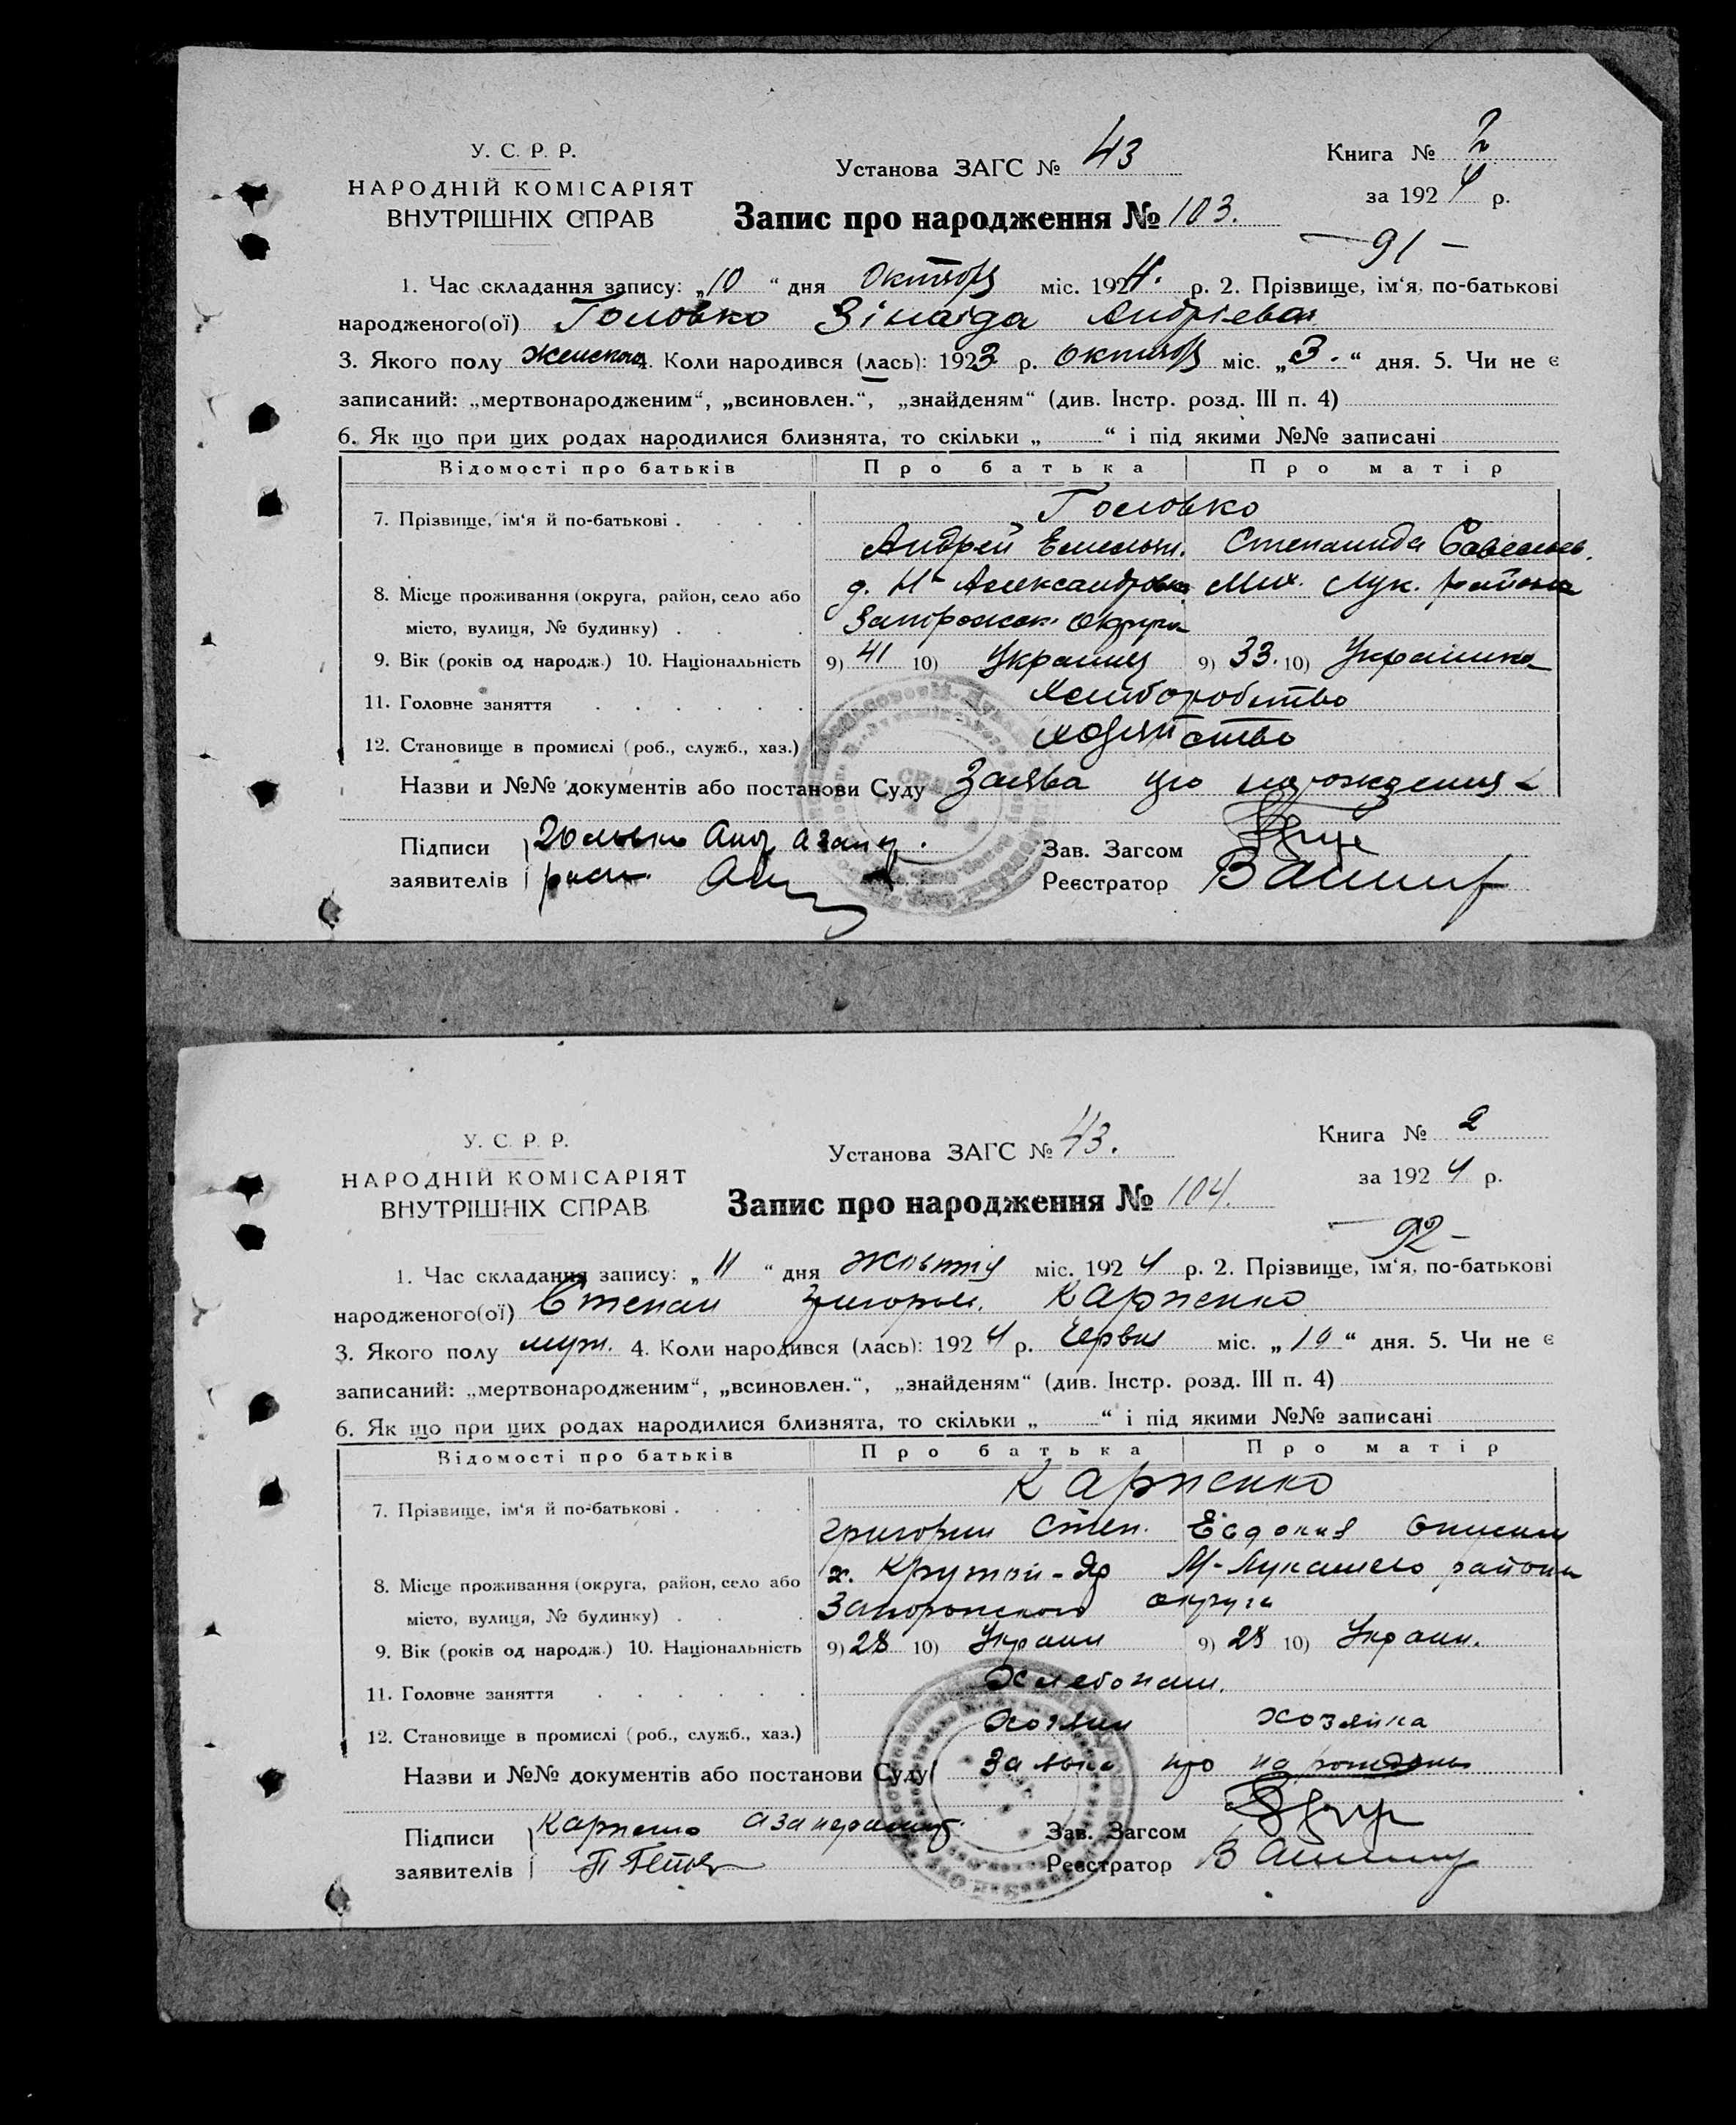 У. С. Р. Р.
НАРОДНІЙ КОМІСАРІЯТ
ВНУТРІШНІХ СПРАВ
Установа ЗАГС № 43
Книга № 2
за 1924 р.
Запис про народження № 103.
— 91 —
1. Час складання запису: „10“ дня Октября міс. 1924. р. 2. Прізвище, ім‘я, по-батькові
народженого(ої) Головко Зінаїда Андрієва
3. Якого полу женского 4. Коли народився (лась): 1923 р. октября міс. „3.“ дня. 5. Чи не є
записаний: „мертвонародженим“, „всиновлен.“, „знайденям“ (див. Інстр. розд. III п. 4)
6. Як що при цих родах народилися близнята, то скільки „ “ і під якими №№ записані
Відомості про батьків Про батька Про матір
7. Прізвище, ім‘я й по-батькові . . . . Головко
Андрей Емельян. Степанида Савельев.
8. Місце проживання (округа, район, село або д. Н- Александровка Мих. Лук. района
місто, вулиця, № будинку) . . Запорожск. Округи
9. Вік (років од народж.) 10. Національність 9) 41 10) Украинец 9) 33. 10) Українка
11. Головне заняття . . . . . . Хлиборобство
12. Становище в промислі (роб., служб., хаз.)
Назви и №№ документів або постанови Суду Заява про
Підписи
заявителів
Зав. Загсом
Реєстратор
У. С. Р. Р.
НАРОДНІЙ КОМІСАРІЯТ
ВНУТРІШНІХ СПРАВ
Установа ЗАГС № 43.
Книга № 2
за 1924 р.
Запис про народження № 104.
— 92 —
1. Час складання запису: „11“ дня жовтня міс. 1924 р. 2. Прізвище, ім‘я, по-батькові
народженого(ої) Степан Григоров. Карпенко
3. Якого полу муж. 4. Коли народився (лась): 1924 р. Червня міс. „10“ дня. 5. Чи не є
записаний: „мертвонародженим“, „всиновлен.“, „знайденям“ (див. Інстр. розд. III п. 4)
6. Як що при цих родах народилися близнята, то скільки „ “ і під якими №№ записані
Відомості про батьків Про батька Про матір
7. Прізвище, ім‘я й по-батькові . . . . Карпенко
Григорий Степ. Евдокия
8. Місце проживання (округа, район, село або х. Крутой-Яр М-Лукашево района
місто, вулиця, № будинку) . . Запорожского округа
9. Вік (років од народж.) 10. Національність 9) 28 10) Украин 9) 28 10) Украин.
11. Головне заняття . . . . . . Хлебопаш.
12. Становище в промислі (роб., служб., хаз.) Хозяин хозяйка
Назви и №№ документів або постанови Суду Заява про
Підписи Карпенко
заявителів
Зав. Загсом
Реєстратор